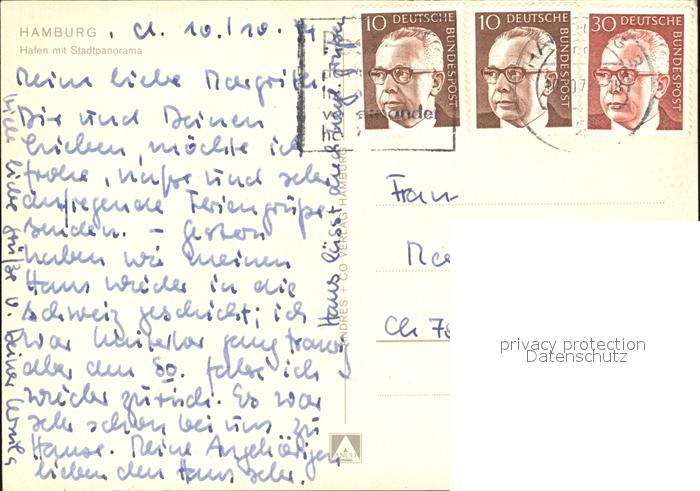 HAMBURG, d. 10./10.
Hafen mit Stadtpanorama
Meine liebe Margrith
Dir und Deinen
Lieben möchte ich
frohe, nasse und sehr
aufregende Feriengrüsse
senden. – Gestern
haben wir meinen
Hans wieder in die
Schweiz geschickt; ich
war hinterher ganz traurig
aber den 80. fahre ich
wieder zurück. Es war
sehr schön bei uns zu
Hause. Meine Angehörigen
lieben den Hans sehr.
Viele liebe Grüße v. Deiner
Hans lässt auch noch grüßen
ANDRES + CO VERLAG HAMBURG
ANCO
10 DEUTSCHE BUNDESPOST
10 DEUTSCHE BUNDESPOST
30 DEUTSCHE BUNDESPOST
einander
Frau
CH 78
privacy protection
Datenschutz